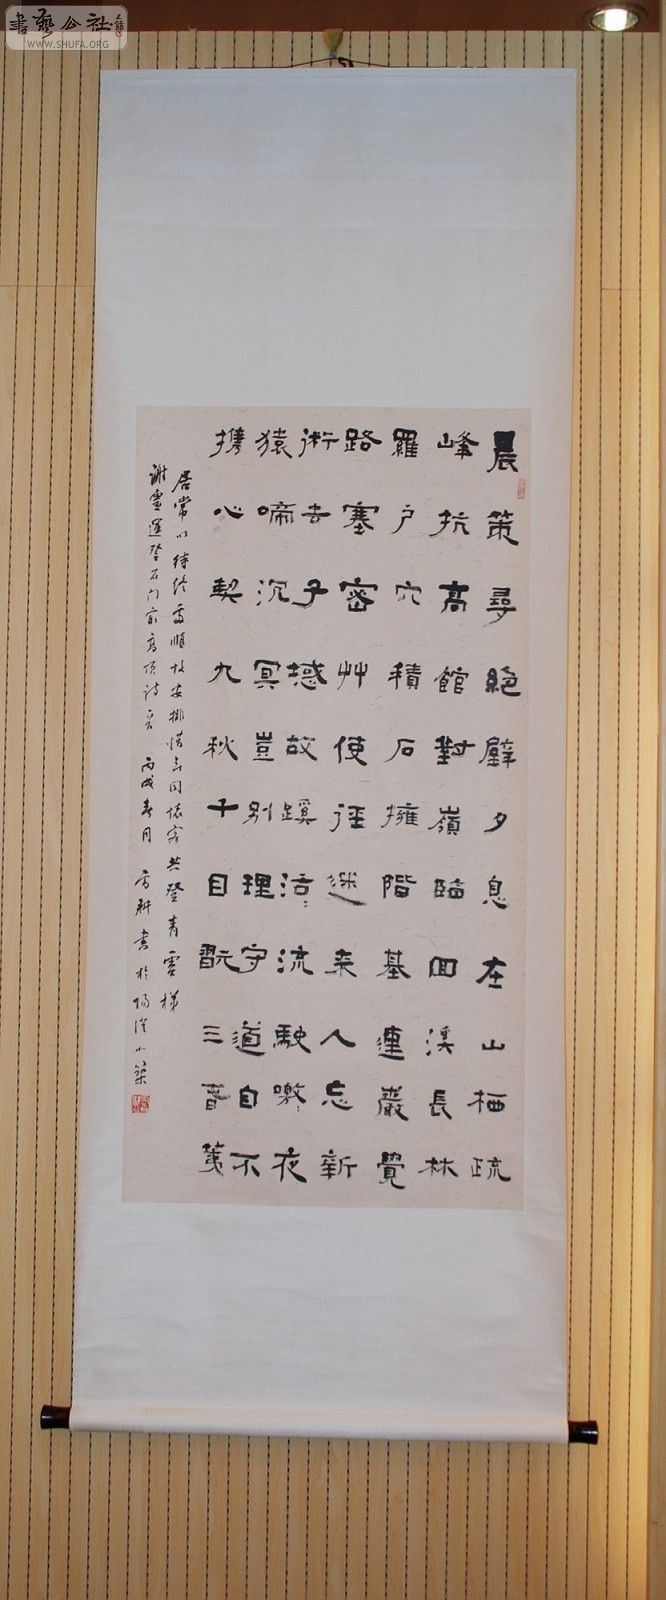 書藝公社
WWW.SHUFA.ORG
晨策尋絕壁夕息在山栖疏
峰抗高館對嶺臨回溪長林
羅戶穴積石擁階基連巖覺
路塞密艸使徑迷来人忘新
術去子憾故蹊活〻流駛噭〻夜
猿啼沉冥豈別理守道自不
携心契九秋干目翫三春荑
居常以待終處順故安排惜無同懷客共登青雲梯
謝靈運登石門最高頂詩 丙戌春月 書於陽澄小築